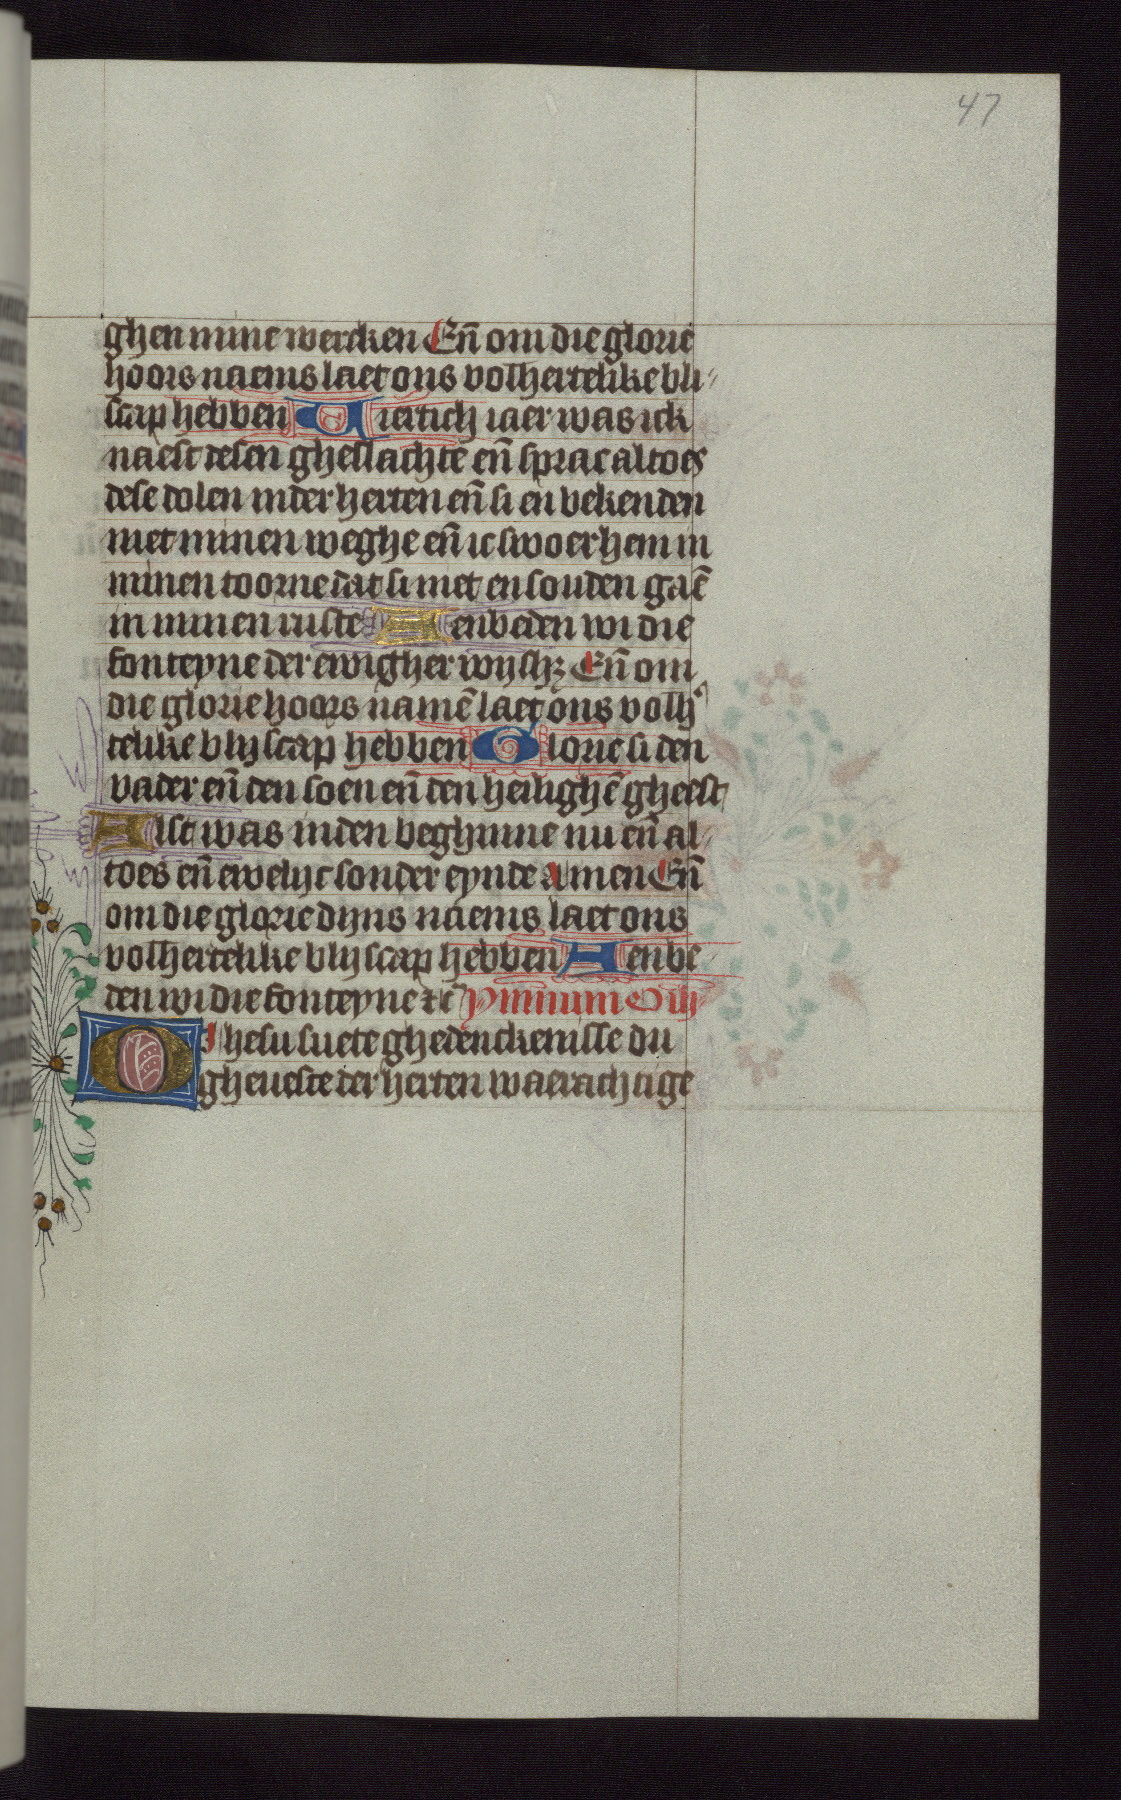 47
ghen mine wercken Eñ om die glorie
hoors naems laet ons volhertelike bli
scap hebben Viertich iaer was ick
naest desen gheslachte eñ sprac altoes
dese dolen inder herten eñ si en bekenden
niet minen weghe eñ ic swoer hem in
minen toorne dat si niet en souden gaē
in minen ruste Aenbeden wi die
fonteyne der ewigher wijsh Eñ om
die glorie hoors namē laet ons volh
telike blyscap hebben Glorie si den
vader eñ den soen eñ den heilighē gheest
Alst was inden beghinne nu eñ al
toes eñ ewelijc sonder eynde Amen Eñ
om die glorie dijns naems laet ons
volhertelike blijscap hebben Aenbe
den wi die fonteyne
O Ihesu suete ghedenckenisse du
gheueste der herten waerachtige